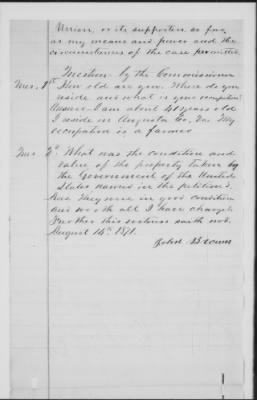 Union, or its supporters as far
as my means and power and the
circumstances of the case permitted.
Question by the Commissioner
Ques. 1st How old are you. Where do you
reside and what is your occupation
Answer. I am about 41 years old
I reside in Augusta Co, Va. My
occupation is a farmer
Ques 2d What was the condition and
value of the property taken by
the Government of the United
States named in the petition.
Ans They were in good condition
and worth all I have charged
Further this witness saith not.
August 14th 1871.
John Brown